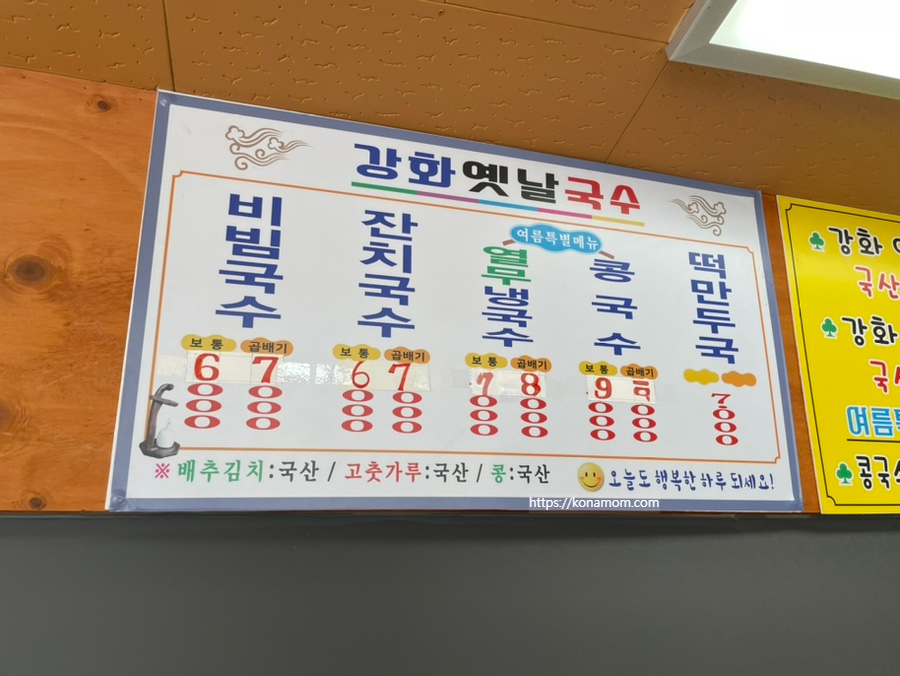 강화옛날국수
여름특별메뉴
비빔국수
보통 곱배기
6000 7000
잔치국수
보통 곱배기
6000 7000
열무냉국수
보통 곱배기
7000 8000
콩국수
보통 곱배기
9000
떡만두국
7000
※배추김치:국산 / 고춧가루:국산 / 콩:국산
오늘도 행복한 하루 되세요!
https://konamom.com
강화
국산
강화
여름특
콩국수